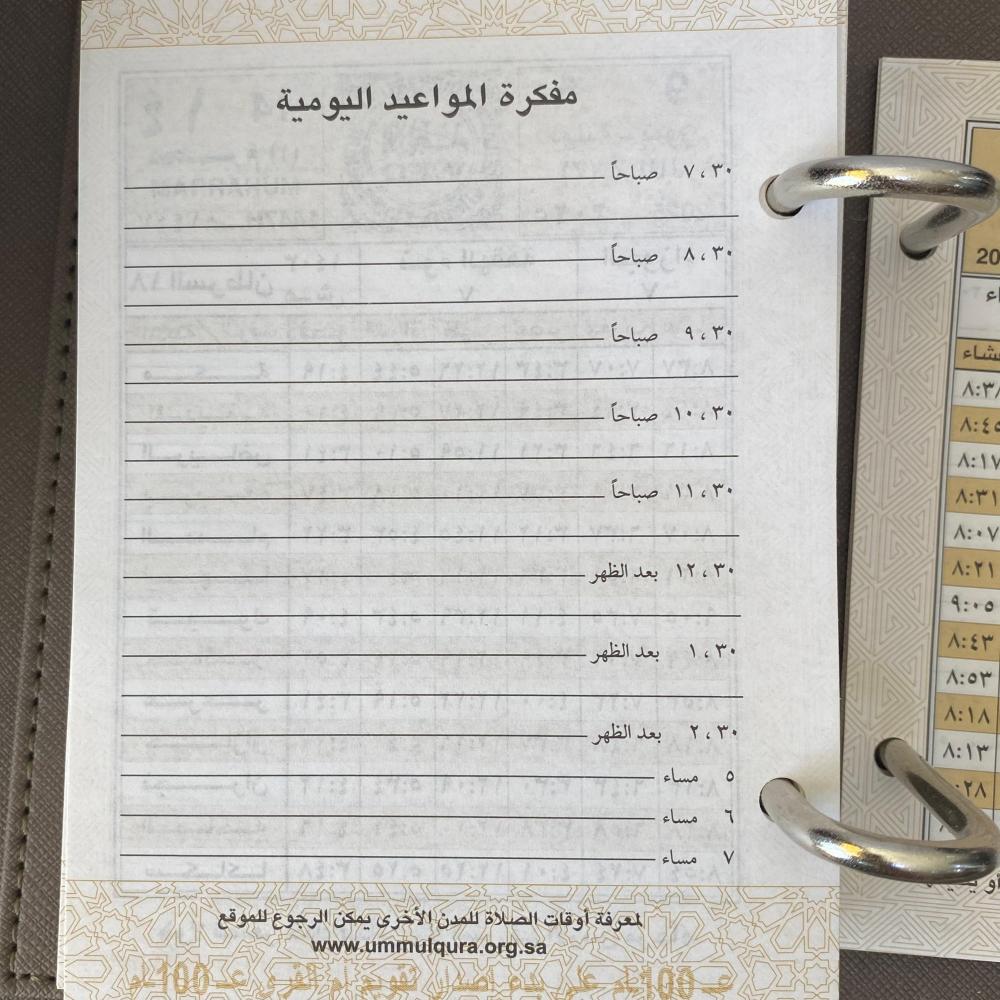 مفكرة المواعيد اليومية
٧،٣٠ صباحاً
٨،٣٠ صباحاً
٩،٣٠ صباحاً
١٠،٣٠ صباحاً
١١،٣٠ صباحاً
١٢،٣٠ بعد الظهر
١،٣٠ بعد الظهر
٢،٣٠ بعد الظهر
٥ مساء
٦ مساء
٧ مساء
لمعرفة أوقات الصلاة للمدن الأخرى يمكن الرجوع للموقع
www.ummulqura.org.sa
20
٨:٣٨
٨:٤٥
٨:١٧
٨:٣١
٨:٠٧
٨:٢١
٩:٠٥
٨:٤٣
٨:٥٣
٨:١٨
٨:١٣